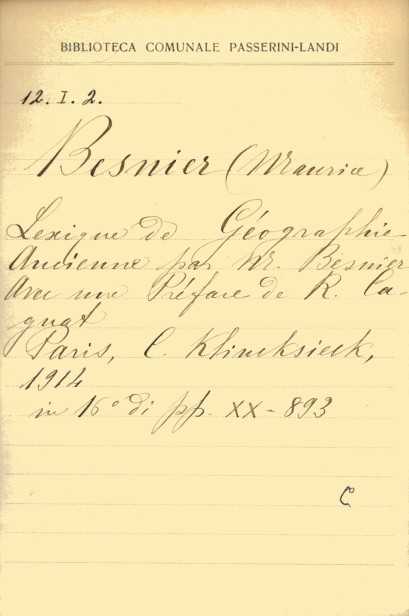 BIBLIOTECA COMUNALE PASSERINI-LANDI
12. I. 2.
Besnier (Maurice)
Lexique de Géographie
Ancienne par M. Besnier
Avec une Préface de R. Ca-
gnat
Paris, C. Klincksieck,
1914
in 16° di pp. XX-893